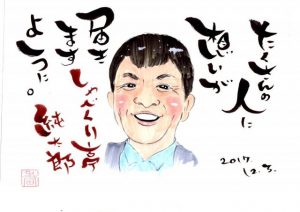 たくさんの
人に
想いが
届き
ます
ように。
しゃべくり亭
純太郎
2017
12.5.